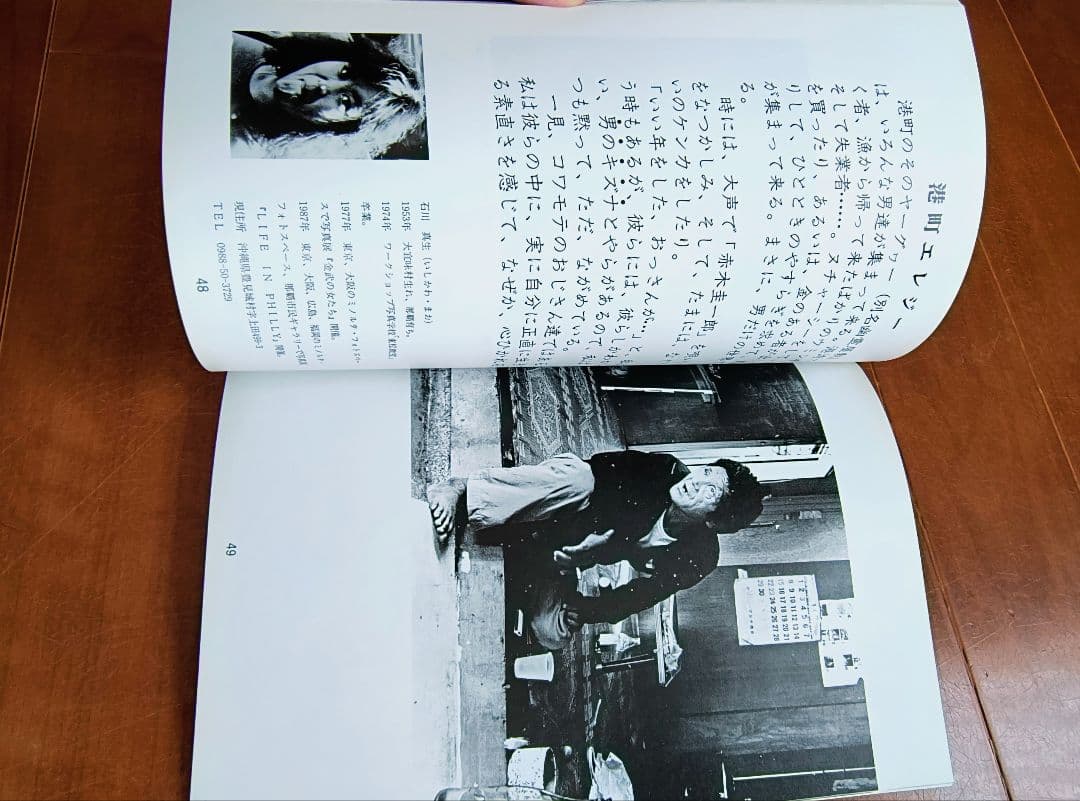 港町エレジー
港町のそのヤーグヮー(別名
は、いろんな男達が集まって来る。
く者、漁から帰って来たばかりの
そして失業者……。ヌチャーシー
を買ったり、あるいは、金のある者が
りして、ひとときのやすらぎを求めて
が集まって来る。まさに、男だけの
る。
時には、大声で「赤木圭一郎」を
をなつかしみ、そして、たまには、
いのケンカをしたり。
「いい年をした、おっさんが…」と、
う時もあるが、彼らには、彼らしかわ
い、男のキズナとやらがあるので
つも黙って、ただ、ながめている。
一見、コワモテのおじさん達では
私は彼らの中に、実に自分に正直に生
る素直さを感じて、なぜか、心ひかれ
石川 真生(いしかわ・まお)
1953年 大宜味村生れ、那覇育ち。
1974年 ワークショップ写真学校
卒業。
1977年 東京、大阪のミノルタ・フォトスペー
スで写真展『金武の女たち』開催。
1987年 東京、大阪、広島、福岡のミノルタ・
フォトスペース、那覇市民ギャラリーで写真展
『LIFE IN PHILLY』開催。
現住所 沖縄県豊見城村字上田
TEL 0988-50-3729
48
1 2 3 4 5 6 7
8 9 10 11 12 13 14
15 16 17 18 19 20 21
22 23 24 25 26 27 28
29 30
49